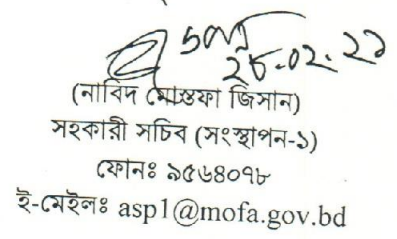 ২৮.০২.২১
(নাবিদ মোস্তফা জিসান)
সহকারী সচিব (সংস্থাপন-১)
ফোনঃ ৯৫৬৪০৭৮
ই-মেইলঃ asp1@mofa.gov.bd